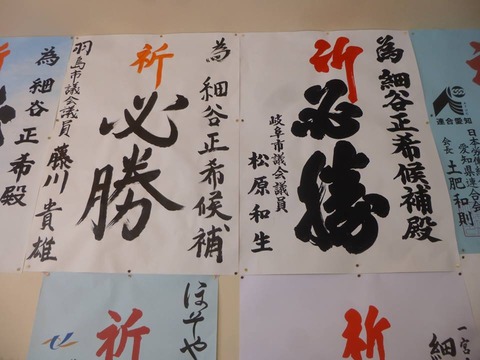 祈
為細谷正希候補殿
必勝
岐阜市議会議員
松原和生
祈
為細谷正希候補
必勝
羽島市議会議員 藤川貴雄
為細谷正希殿
祈
連合愛知
愛知県連合会
会長 土肥和則
祈
ほそや
祈
一宮
細